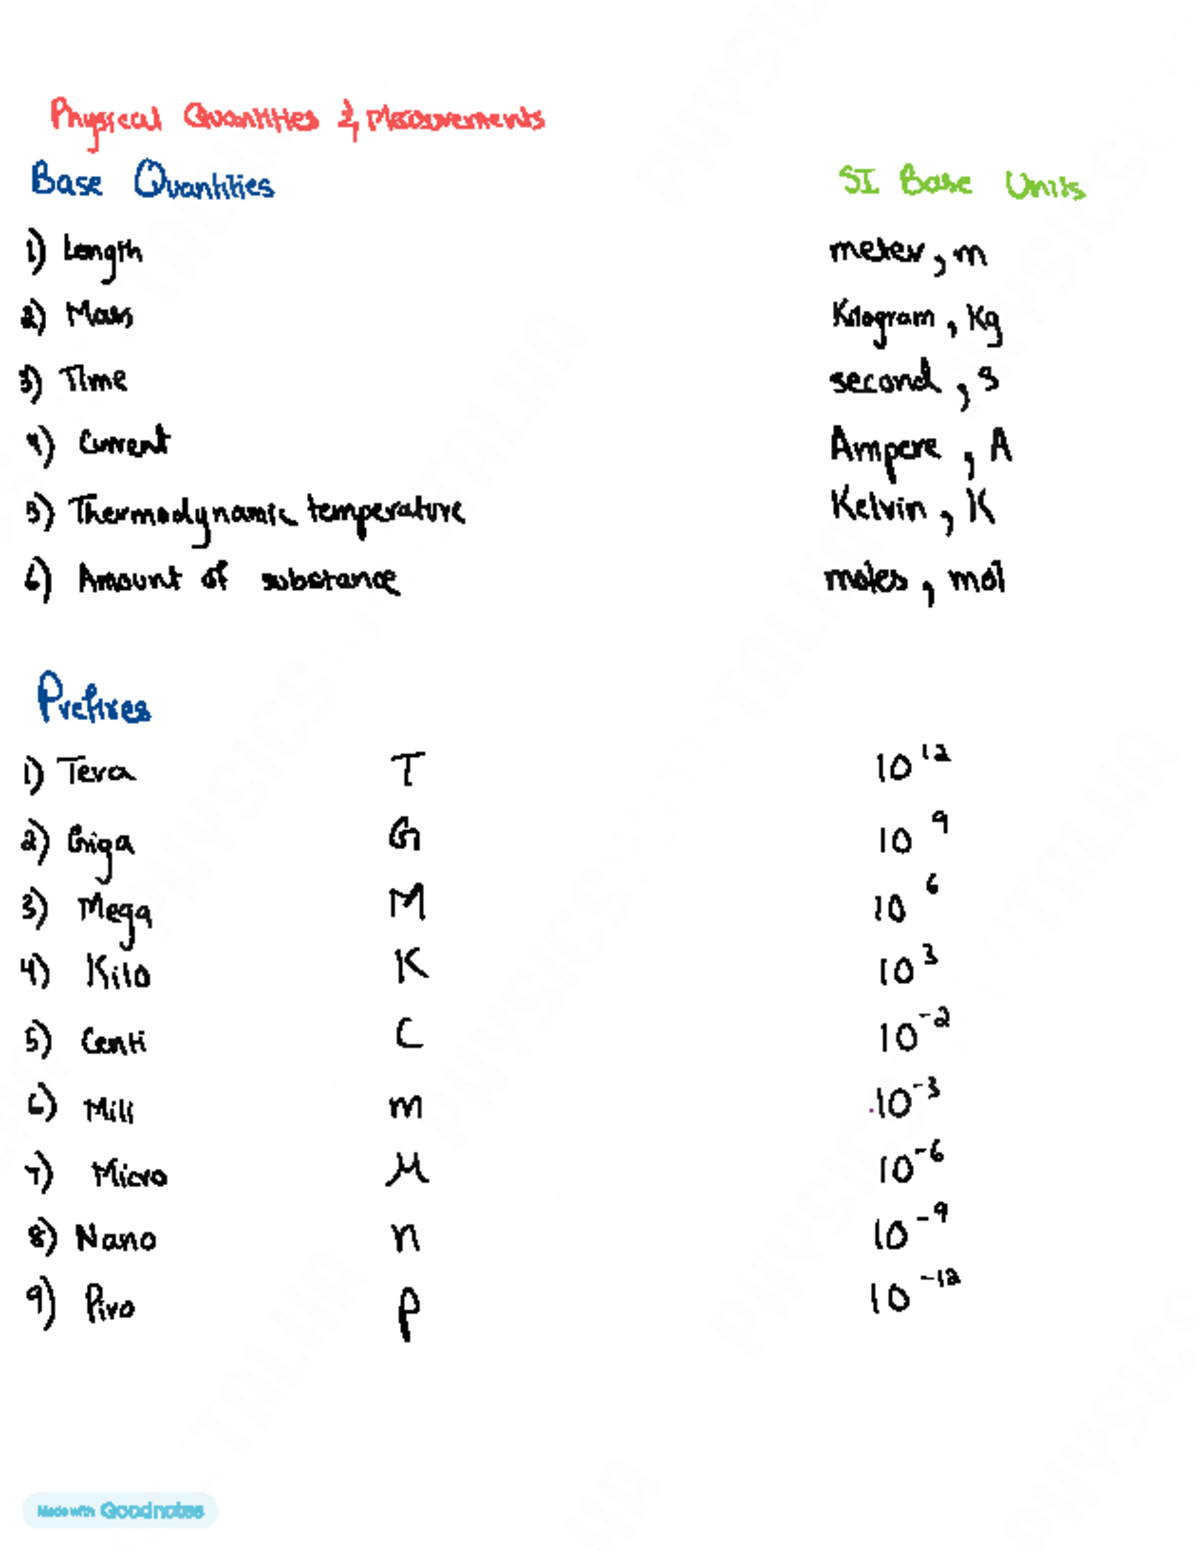 Physical Quantities & Measurements
Base Quantities SI Base Units
1) Length meter, m
2) Mass Kilogram, Kg
3) Time second, s
4) Current Ampere, A
5) Thermodynamic temperature Kelvin, K
6) Amount of substance moles, mol
Prefixes
1) Tera T 10¹²
2) Giga G 10⁹
3) Mega M 10⁶
4) Kilo K 10³
5) Centi C 10⁻²
6) Mili m 10⁻³
7) Micro μ 10⁻⁶
8) Nano n 10⁻⁹
9) Pico p 10⁻¹²
Made with Goodnotes
PHYSICSWITHTALHA